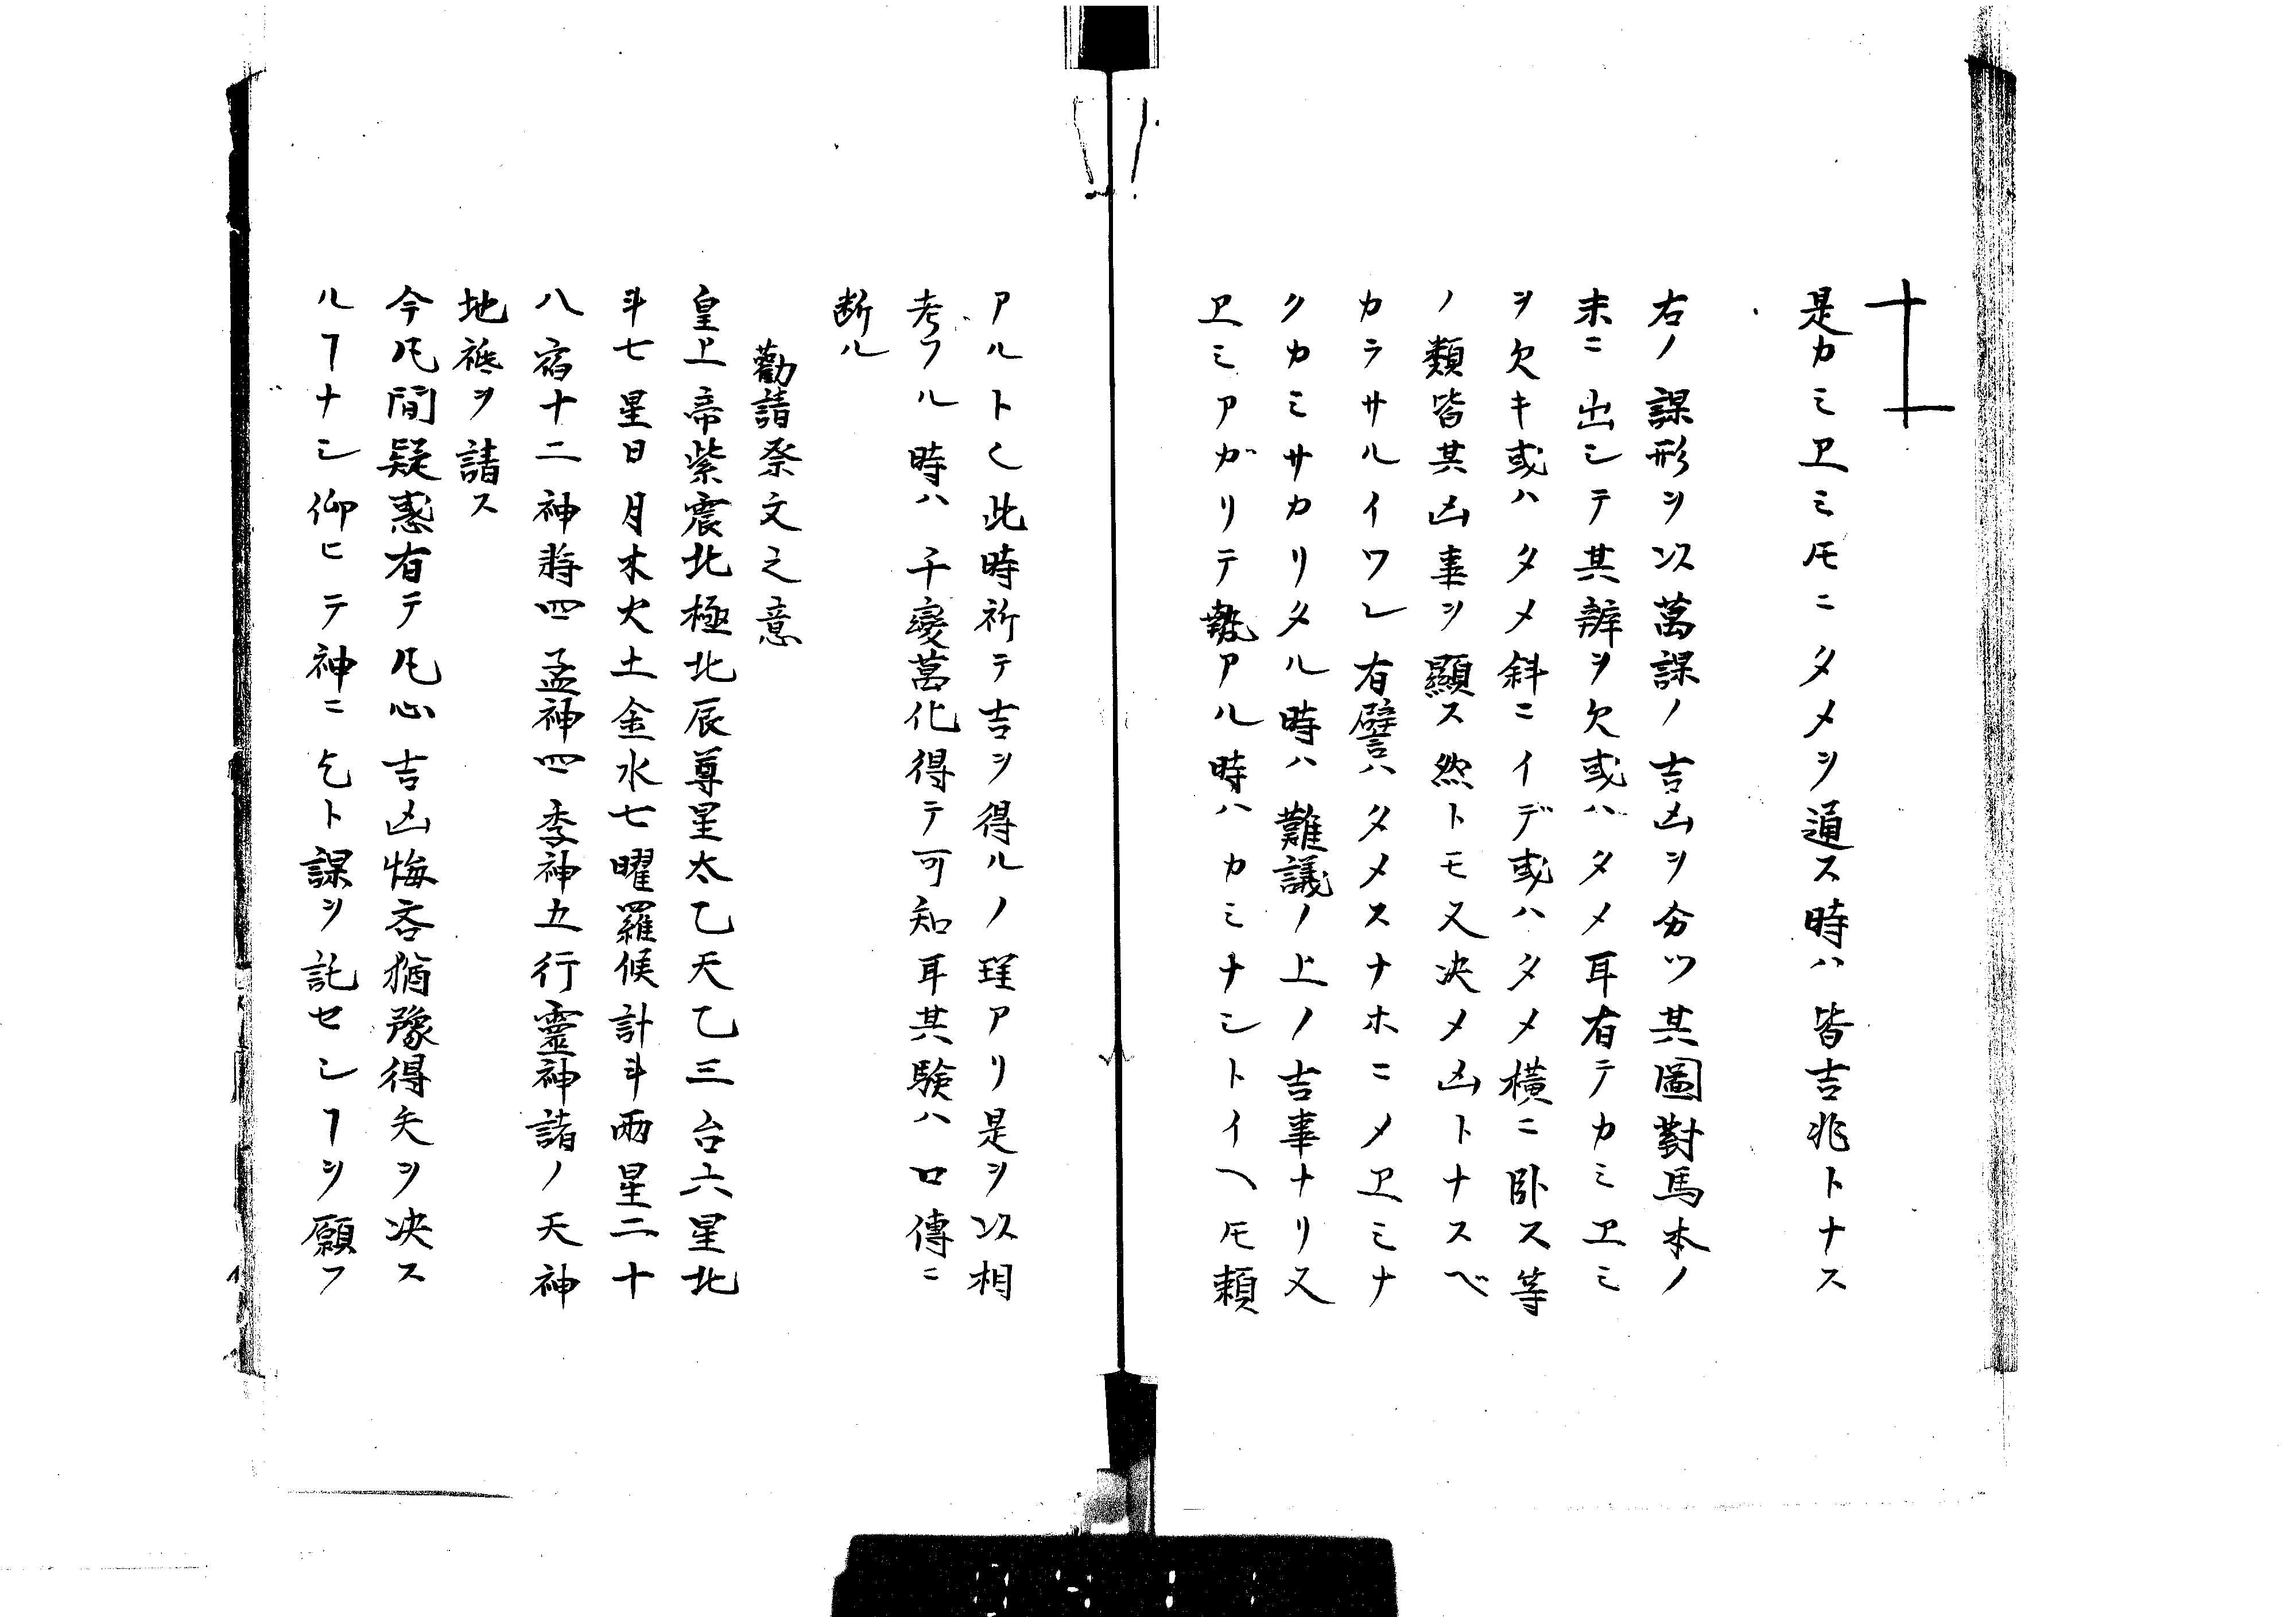 是カミヱミ𪜈ニタメヲ通ス時ハ皆吉兆トナス
右ノ謀形ヲ以萬謀ノ吉凶ヲ分ツ其圖對馬本ノ
末ニ出シテ其辨ヲ欠或ハタメ耳有テカミヱミ
ヲ欠キ或ハタメ斜ニイデ或ハタメ横ニ卧ス等
ノ類皆其凶事ヲ顯ス然トモ又决メ凶トナスベ
カラサルイワレ有譬ハタメスナホニメヱミナ
クカミサカリタル時ハ難議ノ上ノ吉事ナリ又
ヱミアガリテ勢アル時ハカミナシトイヘ𪜈頼
アルトく此時祈テ吉ヲ得ルノ理アリ是ヲ以相
考フル時ハ千變萬化得テ可知耳其験ハ口傳ニ
断ル
勸請祭文之意
皇上帝紫震北極北辰尊星太乙天乙三台六星北
斗七星日月木火土金水七曜羅候計斗兩星二十
八宿十二神将四孟神四季神五行靈神諸ノ天神
地祗ヲ請ス
今凡間疑惑有テ凡心吉凶悔吝猶豫得失ヲ决ス
ルヿナシ仰ヒテ神ニ乞ト謀ヲ託セシヿヲ願フ